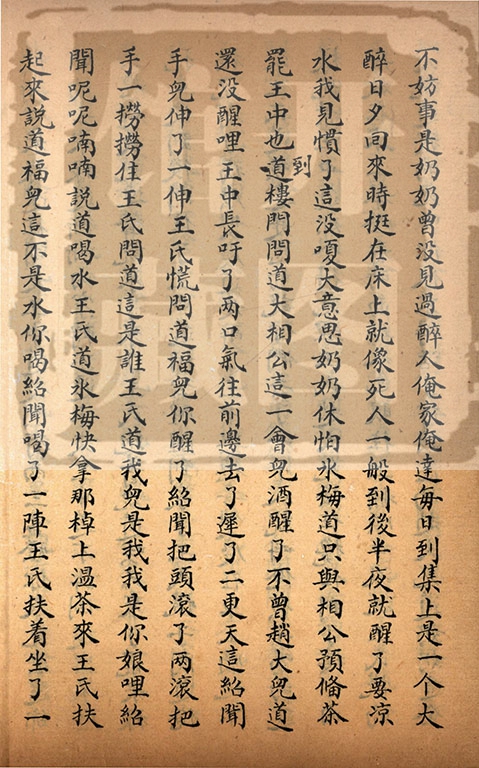 不妨事是奶奶曾没見過醉人俺家俺達每日到集上是一个大
醉日夕回來時挺在床上就像死人一般到後半夜就醒了要凉
水我見慣了這没嗄大意思奶奶休怕氷梅道只與相公預俻茶
罷王中也到道樓門問道大相公這一會兒酒醒了不曾趙大兒道
還没醒哩王中長吁了两口氣往前邊去了遲了二更天這紹聞
手兒伸了一伸王氏慌問道福兒你醒了紹聞把頭滾了两滾把
手一撈撈住王氏問道這是誰王氏道我兒是我我是你娘哩紹
聞呢呢喃喃說道喝水王氏道氷梅快拿那棹上温茶來王氏扶
起來說道福兒這不是水你喝紹聞喝了一陣王氏扶着坐了一